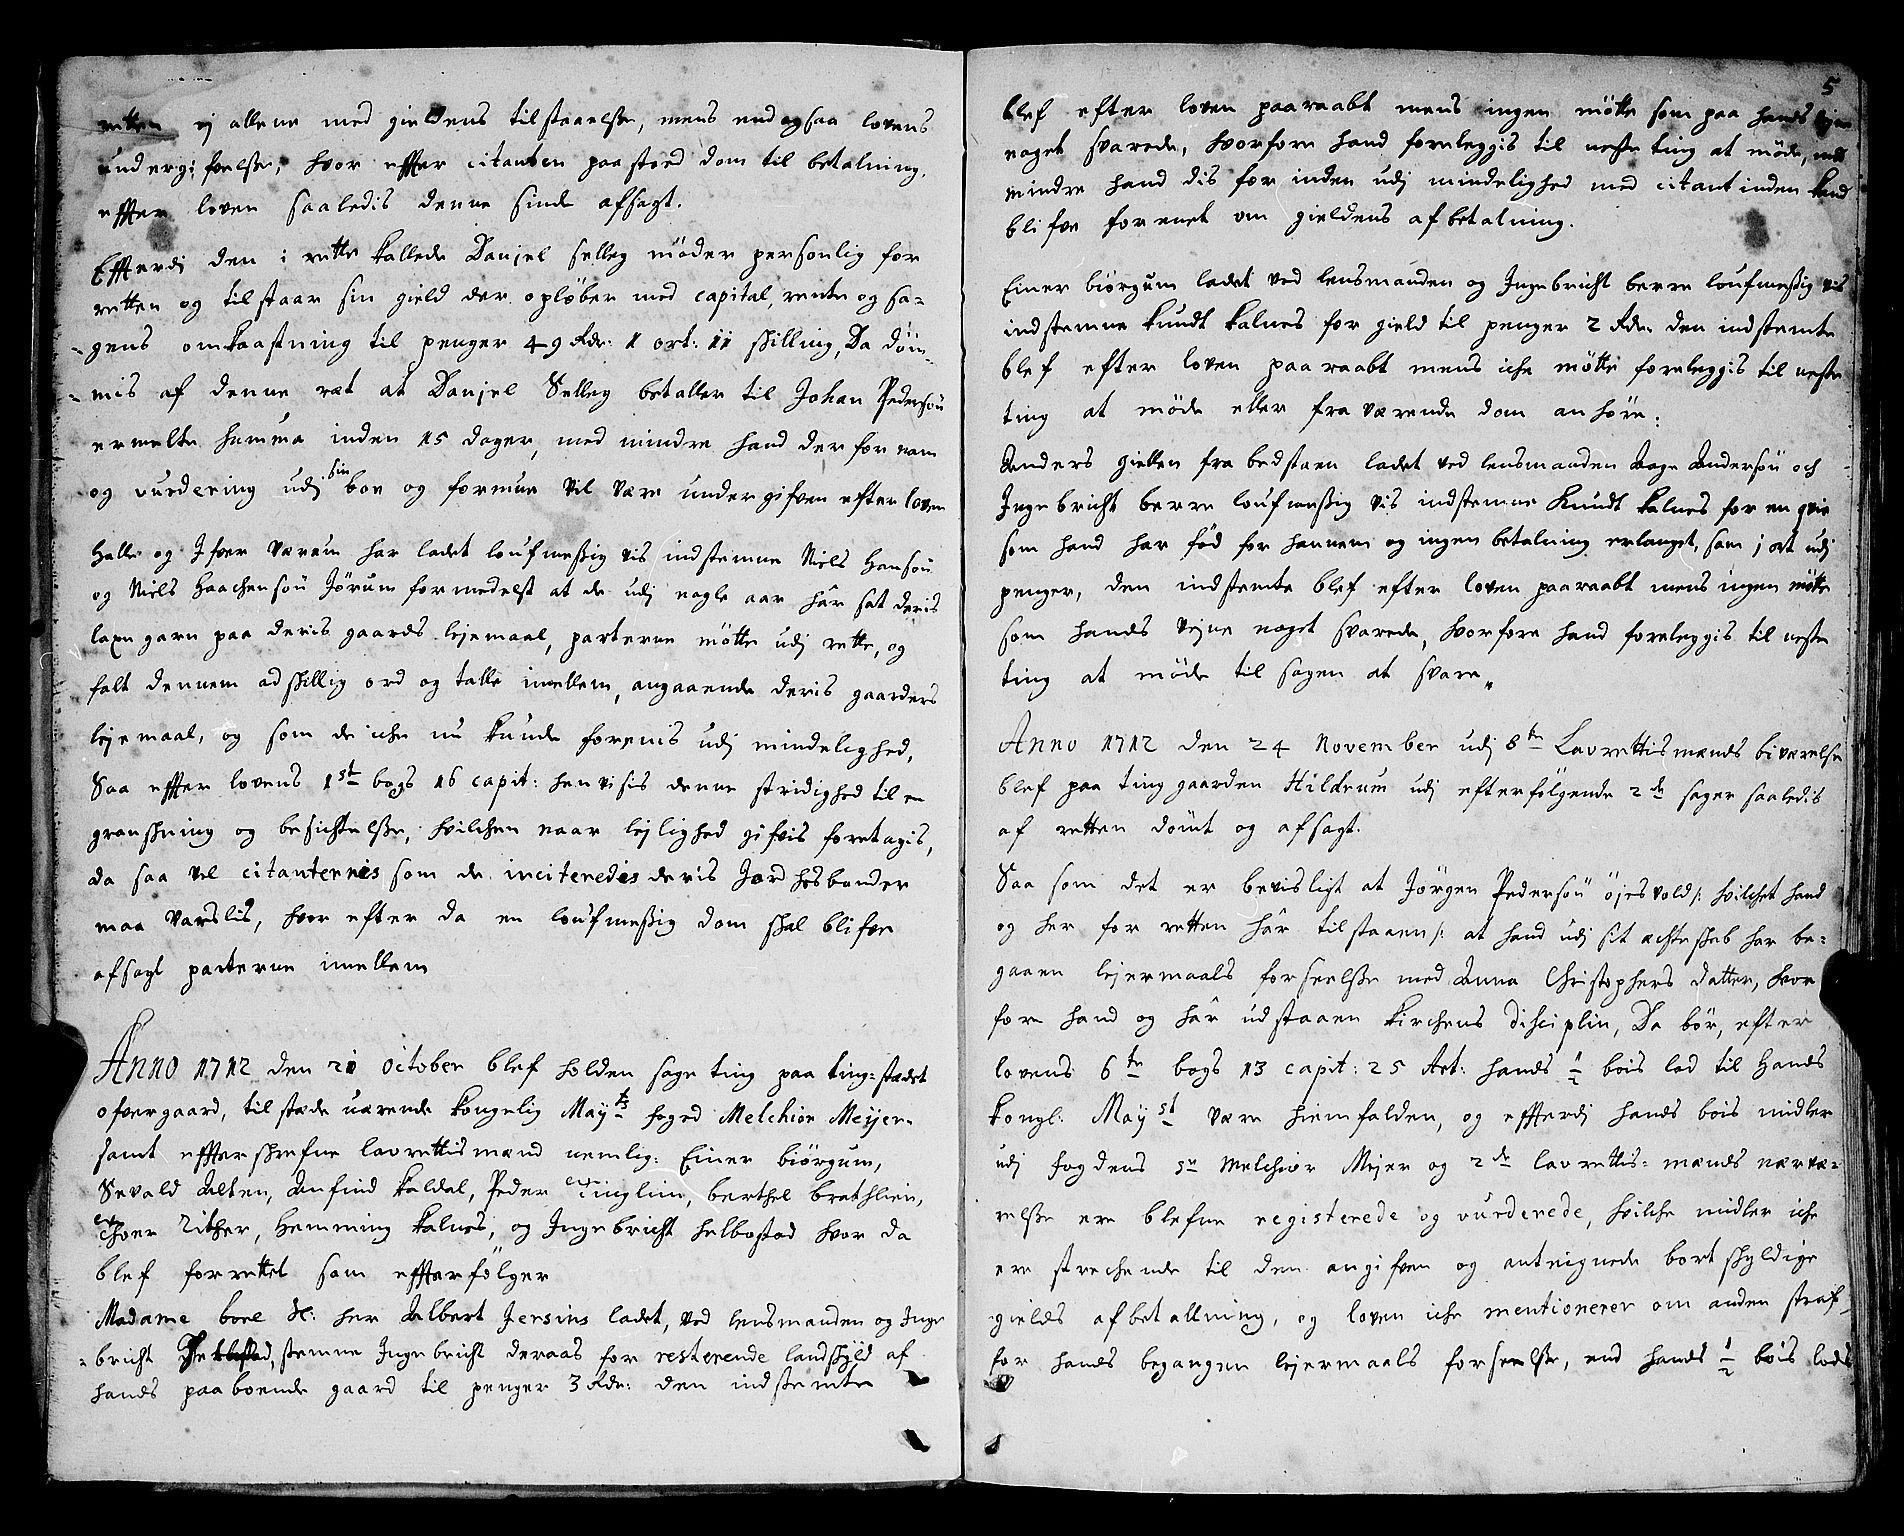 retten ej allene med gieldens tilstaaelse, mens end og saa lovens
undergifvelse, hvor effter citanten paastoed dom til betalning,
effter loven saaledis denne sinde afsagt.
Effterdj den i rette kallede Danjel Selleg møder personlig for
retten og tilstaar sin gield der opløber med capital, rente og sa-
gens omkaastning til penger 49 Rdr: 1 ort: 11 skilling, Da døm-
mis af denne ræt at Danjel Selleg betaller til Johan Pedersøn
ermelte summa inden 15 dager, med mindre hand derfor nam
og vurdering udj sin boe og formue vil være undergifven efter loven
Halle og Ifver Værum har ladet loufmeßig vis indstemne Niels Hansøn
og Niels Haachensøn Jørum formedelst at de udj nogle aar har sat deris
laxe garn paa deris gaards lejemaal, parterne møtte udj rette, og
falt dennem adskillig ord og talle imellem, angaaende deris gaarders
lejemaal, og som de iche nu kunde forenis udj mindelighed,
Saa effter lovens 1st bogs 16 capit: henvisis denne stridighed til en
granskning og besichtelse, hvilchen naar lejlighed gifvis foretagis,
da saa vel citanternis som de inciteredis deris Jord hosbonder
maa varslis, hvor efter da en loufmeßig dom skal blifve
afsagt parterne imellem
Anno 1712 den 21 October blef holden sage ting paa ting-stædet
ofvergaard, tilstæde værende kongelig Mayts foged Melchior Meyer-
samt effterskrefne lavrettismænd nemlig: Einer biørgum,
Sevald Alten, Anfind kaldal, Peder Tinglim, berthel brathlien,
Thoer Zither, Hemming kalnes, og Ingebricht helbostad hvor da
blef forrettet som effterfølger
Madame boel Sl: her Albert Jersins ladet, ved lensmanden og Inge
bricht stemne Ingebricht deraas for resterende landskyld af
hands paaboende gaard til penger 3 Rdr: den indstemte
5
blef efter loven paaraabt mens ingen møtte som paa hands vejne
noget svarede, hvorfore hand foreleggis til neste ting at møde, med
mindre hand dis for inden udj mindelighed med citantinden kand
blifve forenet om gieldens afbetalning.
Einer biørgum ladet ved lensmanden og Ingebricht berre loufmeßig vis
indstemne knudt kalnes for gield til penger 2 Rdr. den indstemte
blef efter loven paaraabt mens iche møtte foreleggis til neste
ting at møde eller fraværende dom anhøre:
Anders gielten fra bedstaen ladet ved lensmanden Aage Andersøn och
Ingebricht berre loufmeßig vis indstemne Knudt kalnes for en qvie
som hand har fød for hannem og ingen betalning erlanget, som j ort udj
penger, den indstemte blef efter loven paaraabt mens ingen møtte
som hands vejne noget svarede, hvorfore hand foreleggis til neste
ting at møde til sagen at svare„
Anno 1712 den 24 November udj 8te Lavrettismænds biværelse
blef paa ting gaarden Hildrum udj efterfølgende 2de sager saaledis
af retten dømt og afsagt.
Saa som det er bevisligt at Jørgen Pedersøn Øjesvold /: hvilchet hand
og her for retten har tilstaaen /: at hand udj sit echteskab har be-
gaaen lejermaals forseelse med Anna Christophers datter, hvor
fore hand og har udstaaen kirchens disciplin, Da bør, efter
lovens 6te bogs 13 capit: 25 Art: hands 1/2 bois lod til Hands
kongl: Mayst være hiemfalden, og effterdj hands bois midler
udj fogdens Sr Melchior Mejer og 2de lavrettis-mænds nærvæ-
relse ere blefne registerede og vurderede, hvilche midler iche
ere strechende til den angifven og anteignede bortskyldige
gields afbetallning, og loven iche mentionerer om anden straf,
for hands begangen lejermaals forseelse, end hands 1/2 bois lods